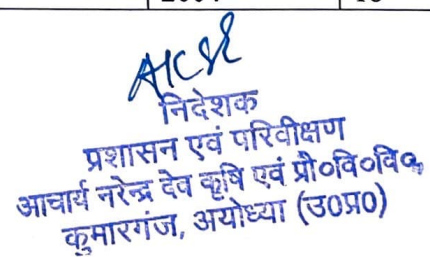 निदेशक
प्रशासन एवं परिवीक्षण
आचार्य नरेन्द्र देव कृषि एवं प्रौ०वि०वि०,
कुमारगंज, अयोध्या (उ0प्र0)